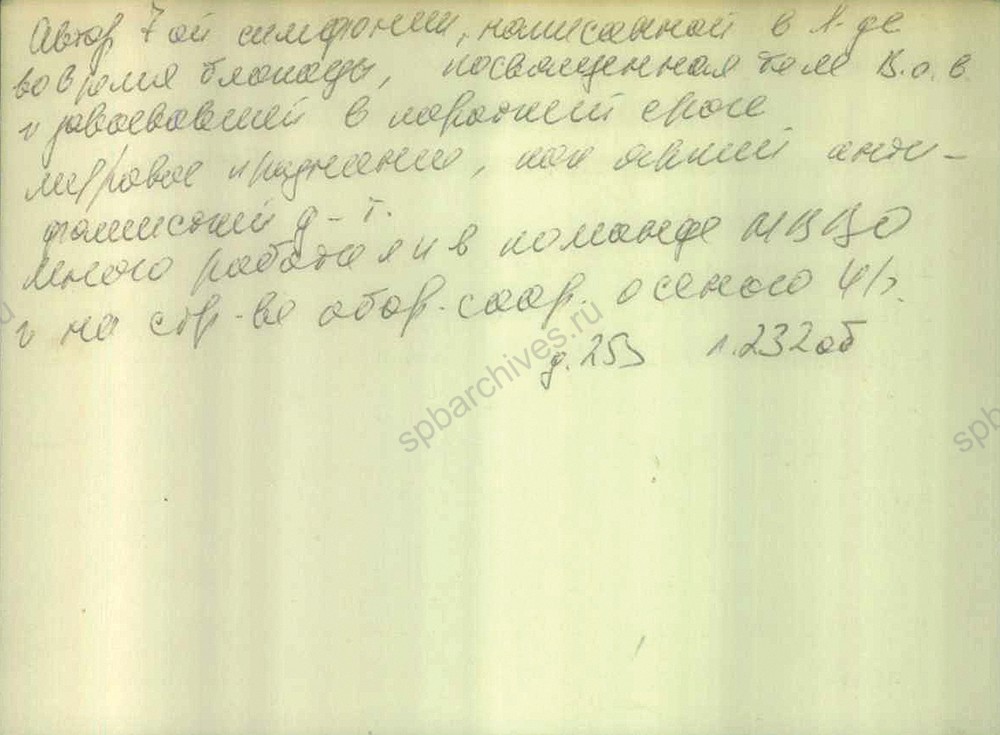 Автор 7ой симфонии, написанной в Л-де
во время блокады, посвященная теме В.о.в
и завоевавшей в короткий срок
мировое признание, как анти-
фашистский д-т.
много работал и в команде МПВО
и на стр-ве обор. соор. осенью 41г.
д. 253 л. 232 об
spbarchives.ru